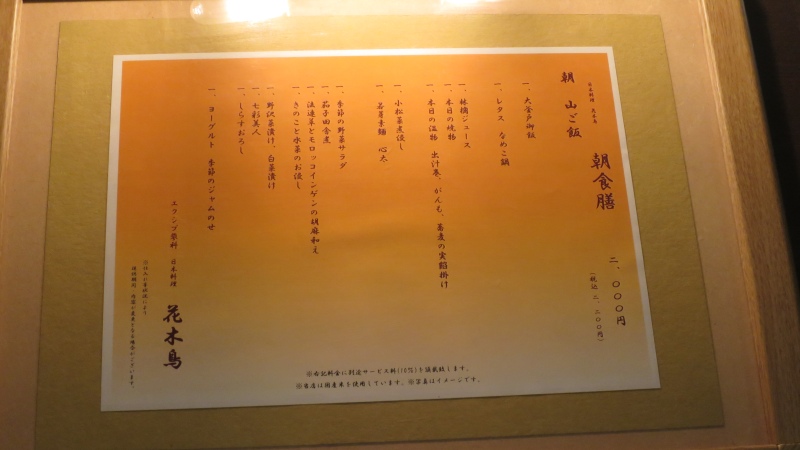 日本料理 花木鳥
朝 山ご飯 朝食膳 二、〇〇〇円
(税込 二、二〇〇円)
一、大釜戸御飯
一、レタス なめこ鍋
一、林檎ジュース
一、本日の焼物
一、本日の温物 出汁巻、がんも、蕎麦の実餡掛け
一、小松菜煮浸し
一、若芽素麺 心太
一、季節の野菜サラダ
一、茄子田舎煮
一、法蓮草とモロッコインゲンの胡麻和え
一、きのこと水菜のお浸し
一、野沢菜漬け、白菜漬け
一、七彩美人
一、しらすおろし
一、ヨーグルト 季節のジャムのせ
エクシブ蓼科 日本料理 花木鳥
※仕入れ等状況により
産地銘柄、内容が変更となる場合がございます。
※右記料金に別途サービス料(10%)を頂戴致します。
※当店は国産米を使用しています。※写真はイメージです。